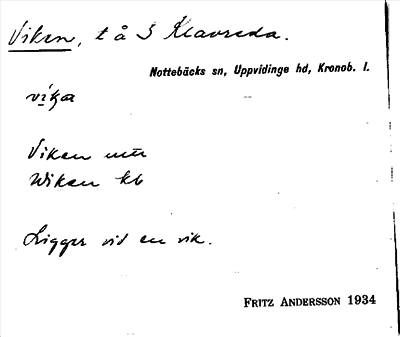 Viken, t å S Klavreda.
Nottebäcks sn, Uppvidinge hd, Kronob. l.
Viken
Wiken kb
Ligger vid en vik.
FRITZ ANDERSSON 1934